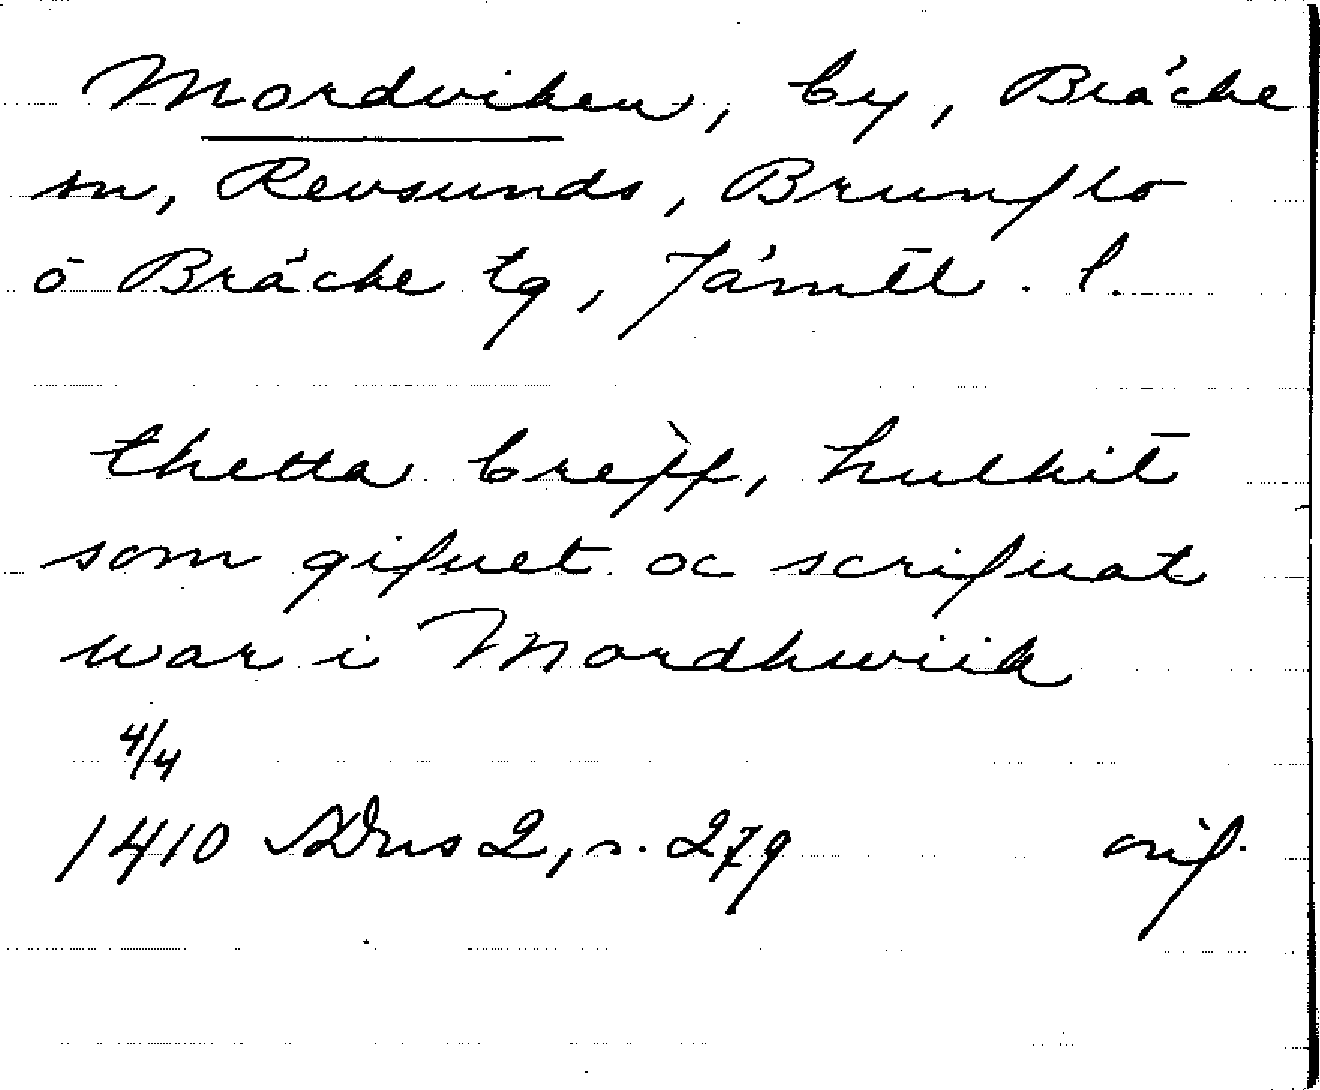 Mordviken, by, Bräcke
sn, Revsunds, Brunflo
o Bräcke tg, Jämtl. l.
thetta breff, hulkit
som gifuet oc scrifuat
war i Mordhwiik
4/4
1410 SDns 2, s. 279 orig.